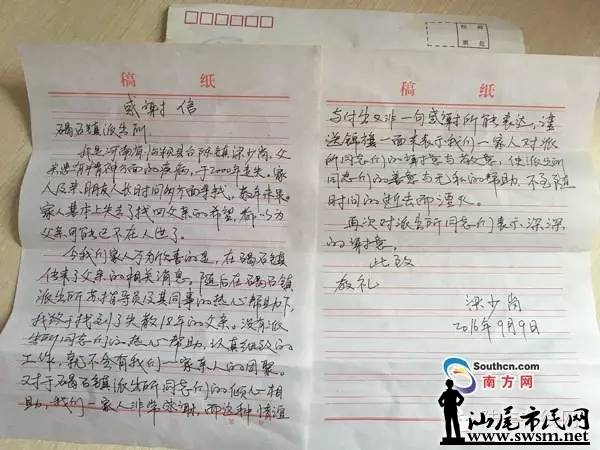 稿 纸
感谢信
碣石镇派出所:
我是河南省 陈镇梁少岗,父
亲患有精神方面的疾病,于2000年走失,家
人及亲朋友人长时间多方寻找,杳无音果。
家人基本上失去了找回父亲的希望,都以为
父亲可能已不在人世了。
令我们家人不为欣喜的是,在碣石镇
传来了父亲的相关消息。随后在碣石镇
派出所 指导员及其同事的热心帮助下,
我终于找到了失散18年的父亲。没有派
出所同志们的热心帮助,认真细致的
工作,就不会有我们一家亲人的团聚。
对于碣石镇派出所同志们的倾心相
助,我们一家人非常感谢,而这种情谊
稿 纸
与付出又非一句感谢所能表达,谨
送锦旗一面来表于我们一家人对派
所同志们的谢意与敬意,使派出所
同志们的善意与无私的帮助,不至随
时间的逝去而湮灭。
再次对派出所同志们表示深深
的谢意。
此致
敬礼
梁少岗
2016年9月9日
Southcn.com
南方网
汕尾市民网
www.swsm.net